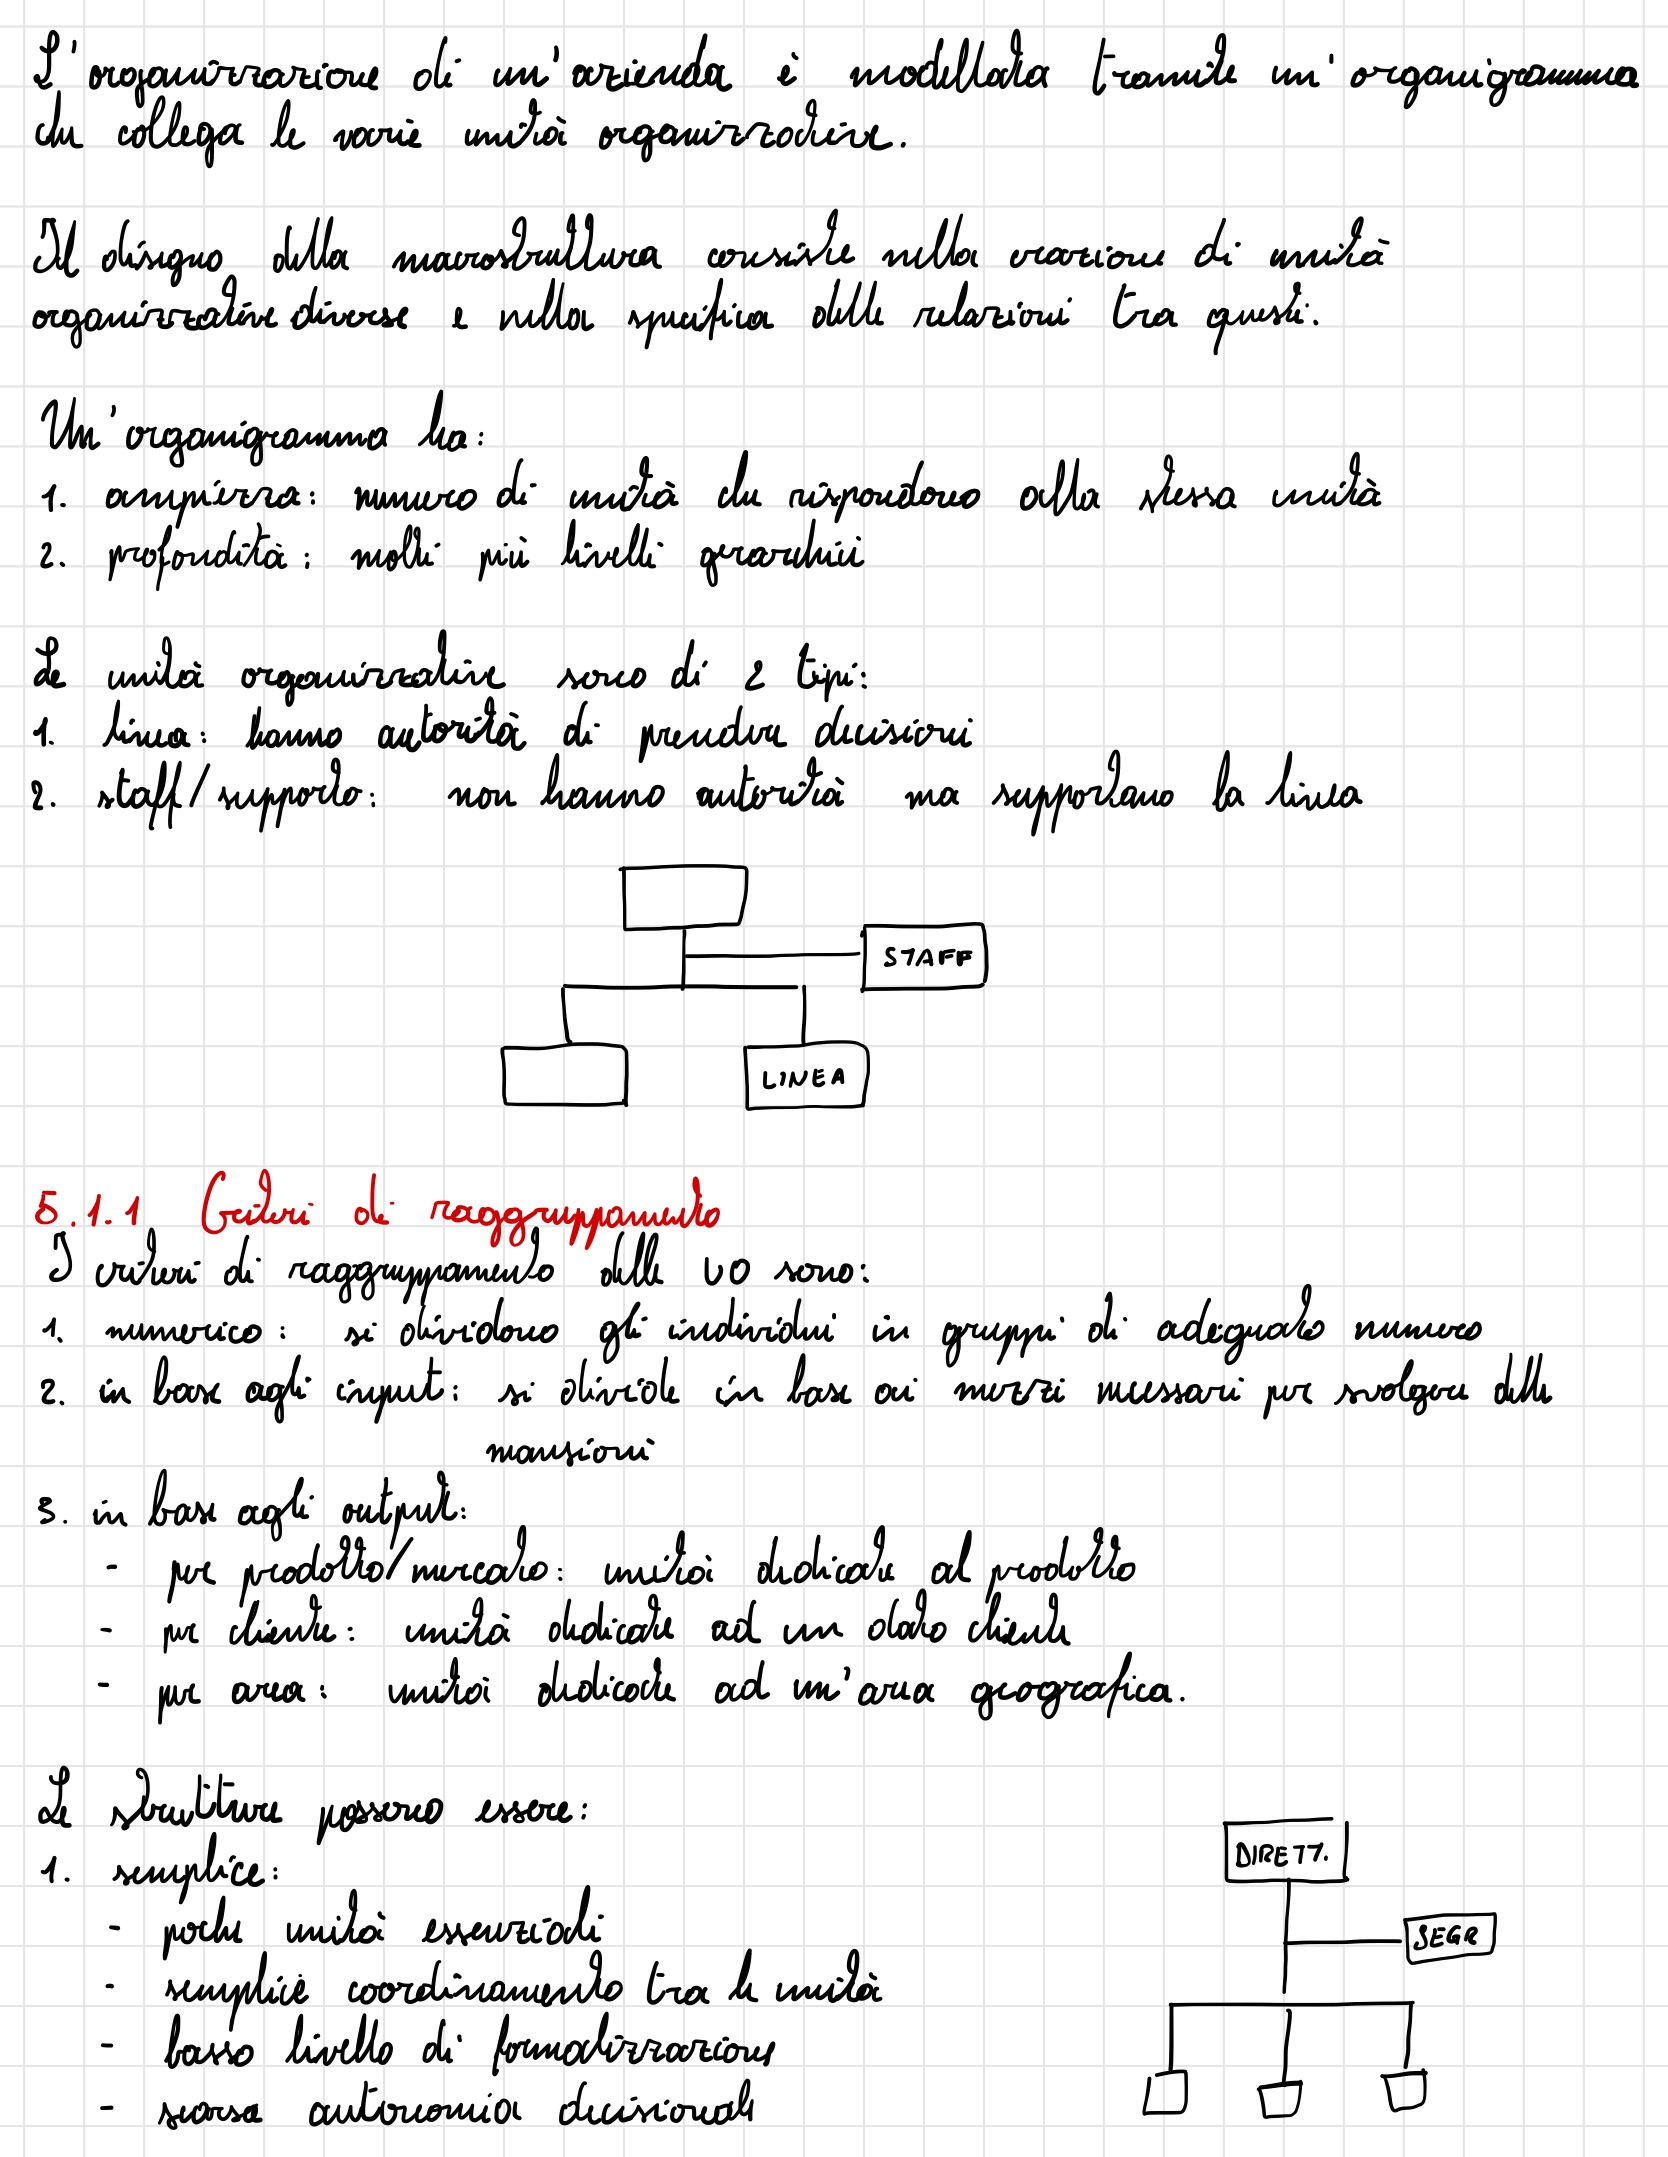 L'organizzazione di un'azienda è modellata tramite un'organigramma
che collega le varie unità organizzative.
Il disegno della macrostruttura consiste nella creazione di unità
organizzative diverse e nella specifica delle relazioni tra questi.
Un'organigramma ha:
1. ampiezza: numero di unità che rispondono alla stessa unità
2. profondità: molti più livelli gerarchici
Le unità organizzative sono di 2 tipi:
1. linea: hanno autorità di prendere decisioni
2. staff/supporto: non hanno autorità ma supportano la linea
STAFF
LINEA
5.1.1 Criteri di raggruppamento
I criteri di raggruppamento delle UO sono:
1. numerico: si dividono gli individui in gruppi di adeguato numero
2. in base agli input: si divide in base ai mezzi necessari per svolgere delle
mansioni
3. in base agli output:
- per prodotto/mercato: unità dedicate al prodotto
- per cliente: unità dedicate ad un dato cliente
- per area: unità dedicate ad un'area geografica.
Le strutture possono essere:
1. semplice:
DIRETT.
- poche unità essenziali
SEGR
- semplice coordinamento tra le unità
- basso livello di formalizzazione
- scarsa autonomia decisionale